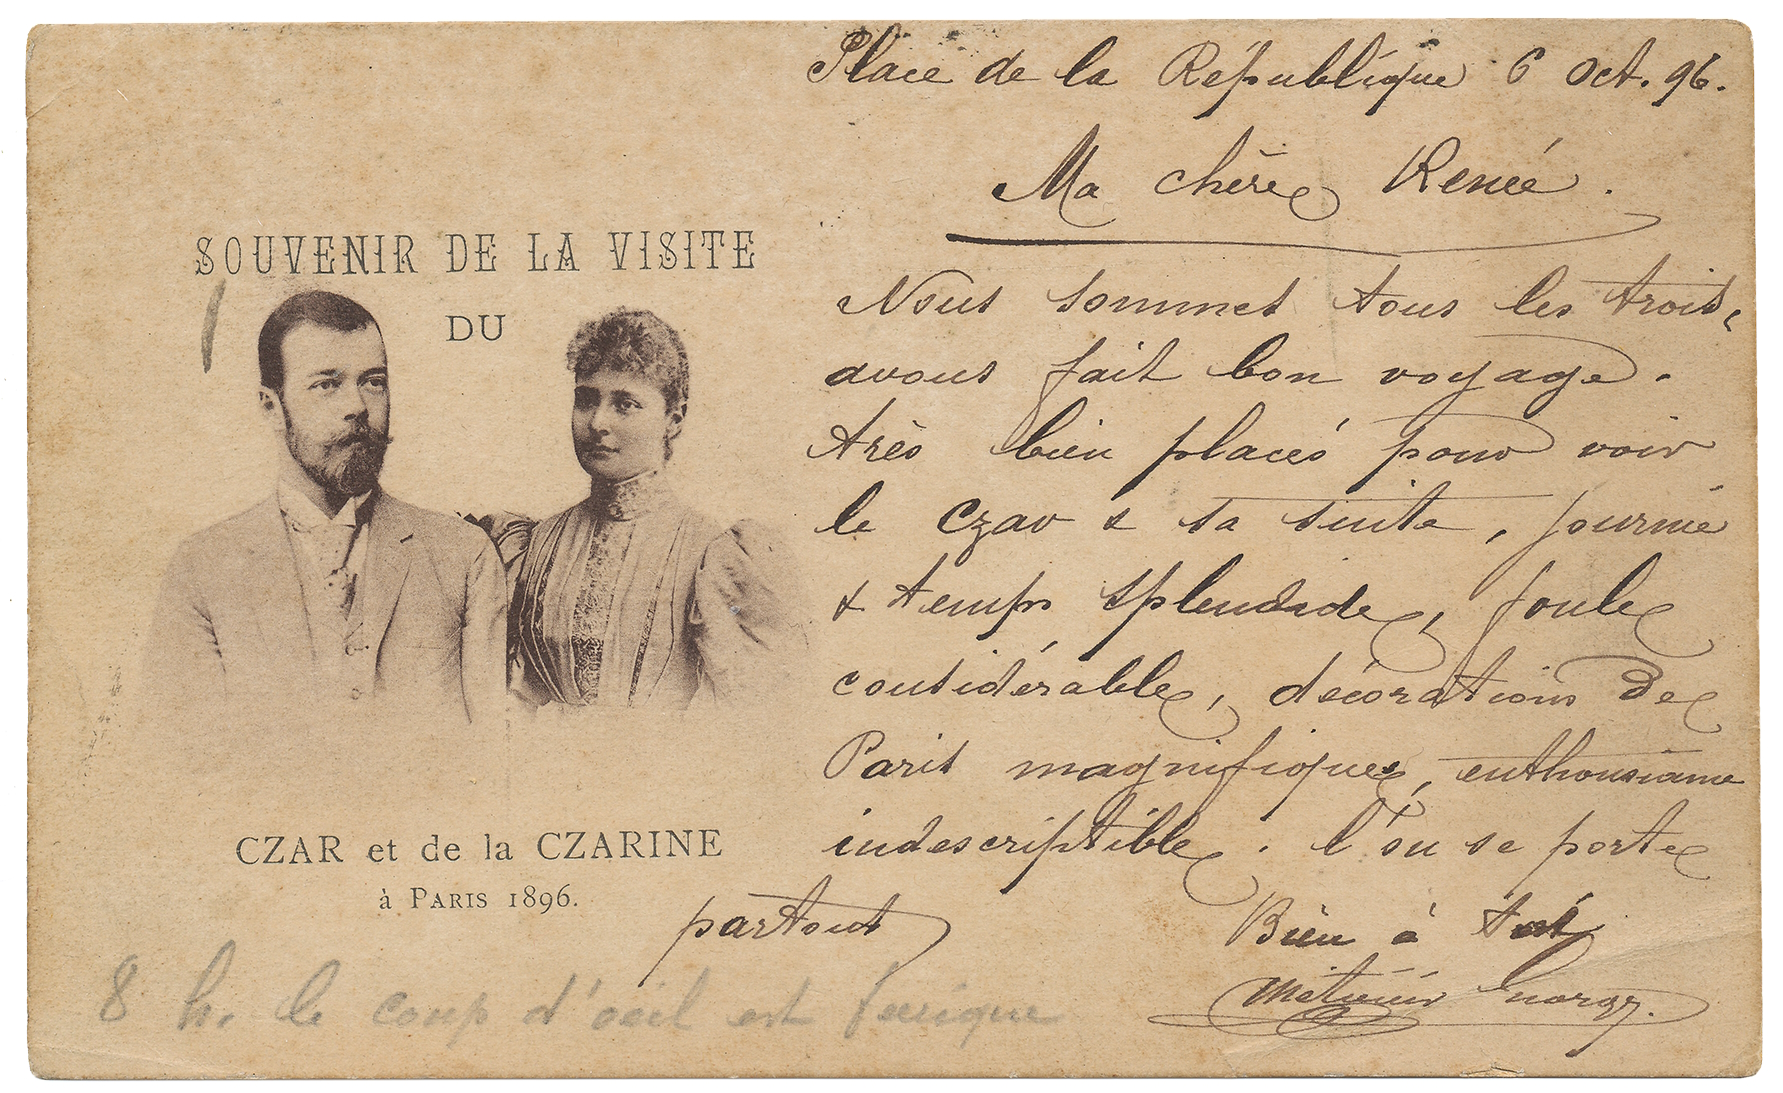 SOUVENIR DE LA VISITE
DU
CZAR et de la CZARINE
à PARIS 1896.
Place de la République 6 Oct. 96.
Ma chère Renée.
Nous sommes tous les trois,
avons fait bon voyage.
très bien placés pour voir
le czar & sa suite, journée
& temps splendide, foule
considérable, décorations de
Paris magnifiques, enthousiame
indescriptible. l'on se porte
partout
Bien à toi
8 h. le coup d'oeil est feerique